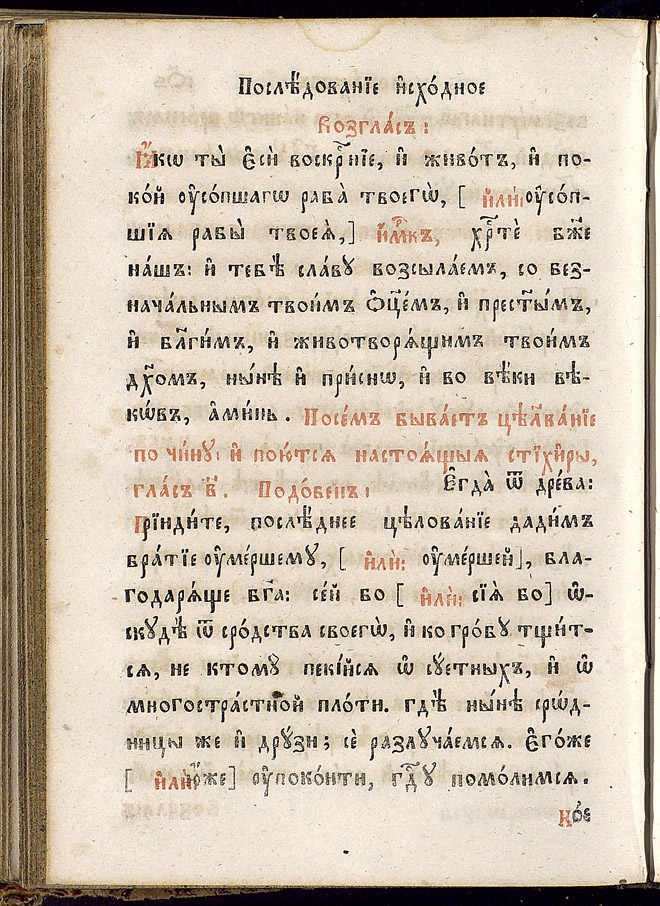 Послѣ́дованїе и҆схо́дное
Возгла́съ:
Ꙗ҆́кѡ ты̀ є҆сѝ воскрⷭ҇нїе, и҆ живо́тъ, и҆ по-
ко́й ᲂу҆со́пшагѡ раба̀ твоегѡ̀, [ и҆лѝ: ᲂу҆со́п-
шїѧ рабы̀ твоеѧ̀,] и҆́мⷬ҇къ, хрⷭ҇тѐ бж҃е
на́шъ: и҆ тебѣ̀ сла́вꙋ возсыла́емъ, со без-
нача́льнымъ твои́мъ ѻ҆ц҃е́мъ, и҆ прест҃ы́мъ,
и҆ бл҃ги́мъ, и҆ животворѧ́щимъ твои́мъ
дх҃омъ, ны́нѣ и҆ при́снѡ, и҆ во вѣ́ки вѣ-
кѡ́въ, а҆ми́нь. Посе́мъ быва́етъ цѣлва́нїе
по чи́нꙋ: и҆ пою́тсѧ настоѧ́щыѧ стїхи̑ры,
гла́съ в҃. Подо́бенъ: Є҆гда̀ ѿ дре́ва:
Прїиди́те, послѣ́днее цѣлова́нїе дади́мъ
бра́тїе ᲂу҆ме́ршемꙋ, [ и҆лѝ: ᲂу҆ме́ршей], бла-
годарѧ́ще бг҃а: се́й бо [ и҆лѝ: сїѧ̀ бо] ѡ҆-
скꙋдѣ̀ ѿ сро́дства своегѡ̀, и҆ ко гро́бꙋ тщи́т-
сѧ, не ктомꙋ̀ пекі́йсѧ ѡ҆ сꙋ́етныхъ, и҆ ѡ҆
многостра́стной пло́ти. гдѣ̀ ны́нѣ срѡ́д-
ницы же и҆ дрꙋ́зи; сѐ разлꙋча́емсѧ. Є҆го́же
[ и҆лѝ: ю҆́же] ᲂу҆поко́ити, гдⷭ҇ꙋ помо́лимсѧ.
Ко́е